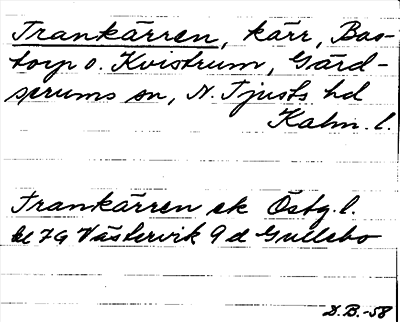 Trankärren, kärr, Bas-
torp o. Kvistrum, Gärd-
serums sn, N. Tjusts hd
Kalm. l.
Trankärren ek Östg. l.
bl 7G Västervik 9 d Gullebo
D.B.-58